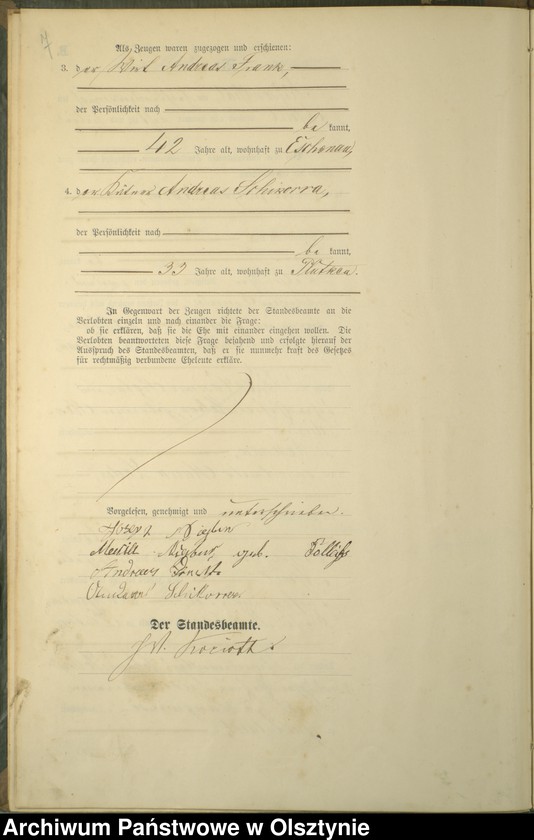 Als Zeugen waren zugezogen und erschienen:
3. der Wirt Andreas Frank,
der Persönlichkeit nach
be kannt,
42 Jahre alt, wohnhaft zu Eschenau,
4. der Andreas
der Persönlichkeit nach
be kannt,
33 Jahre alt, wohnhaft zu
In Gegenwart der Zeugen richtete der Standesbeamte an die
Verlobten einzeln und nach einander die Frage:
ob sie erklären, daß sie die Ehe mit einander eingehen wollen. Die
Verlobten beantworteten diese Frage bejahend und erfolgte hierauf der
Ausspruch des Standesbeamten, daß er sie nunmehr kraft des Gesetzes
für rechtmäßig verbundene Eheleute erkläre.
Vorgelesen, genehmigt und unterschrieben.
geb.
Der Standesbeamte.
Archiwum Państwowe w Olsztynie